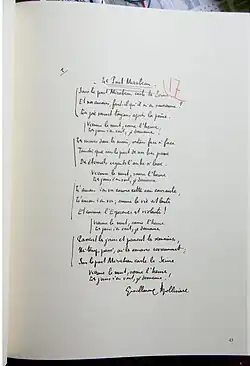 Le Pont Mirabeau
17
Sous le pont Mirabeau coule la Seine
Et nos amours, faut-il qu'il m'en souvienne
La joie venait toujours après la peine.
Vienne la nuit, sonne l'heure,
Les jours s'en vont, je demeure.
Les mains dans les mains, restons face à face
Tandis que sous le pont de nos bras passe
Vienne la nuit, sonne l'heure
Les jours s'en vont, je demeure
L'amour s'en va comme cette eau courante,
L'amour s'en va, comme la vie est lente
Et comme l'Espérance est violente!
Vienne la nuit, sonne l'heure,
Les jours s'en vont, je demeure
Passent les jours et passent les semaines,
Ni temps passé, ni les amours reviennent;
Sous le pont Mirabeau coule la Seine
Vienne la nuit, sonne l'heure
Les jours s'en vont, je demeure!
Guillaume Apollinaire
43